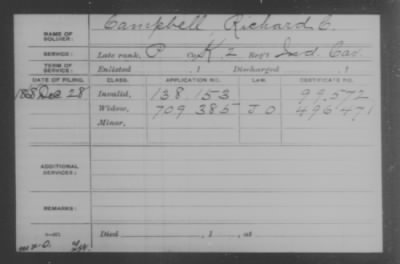 NAME OF SOLDIER: Campbell, Richard C.
SERVICE: Late rank, P Co. K, 2 Reg't Ind. Cav.
TERM OF SERVICE: Enlisted , 1 Discharged , 1
DATE OF FILING. CLASS. APPLICATION NO. LAW. CERTIFICATE NO.
Dec 28 Invalid, 138.153 99,572
Widow, 709 385 J O 496 471
Minor,
ADDITIONAL SERVICES:
REMARKS:
Died , 1 , at